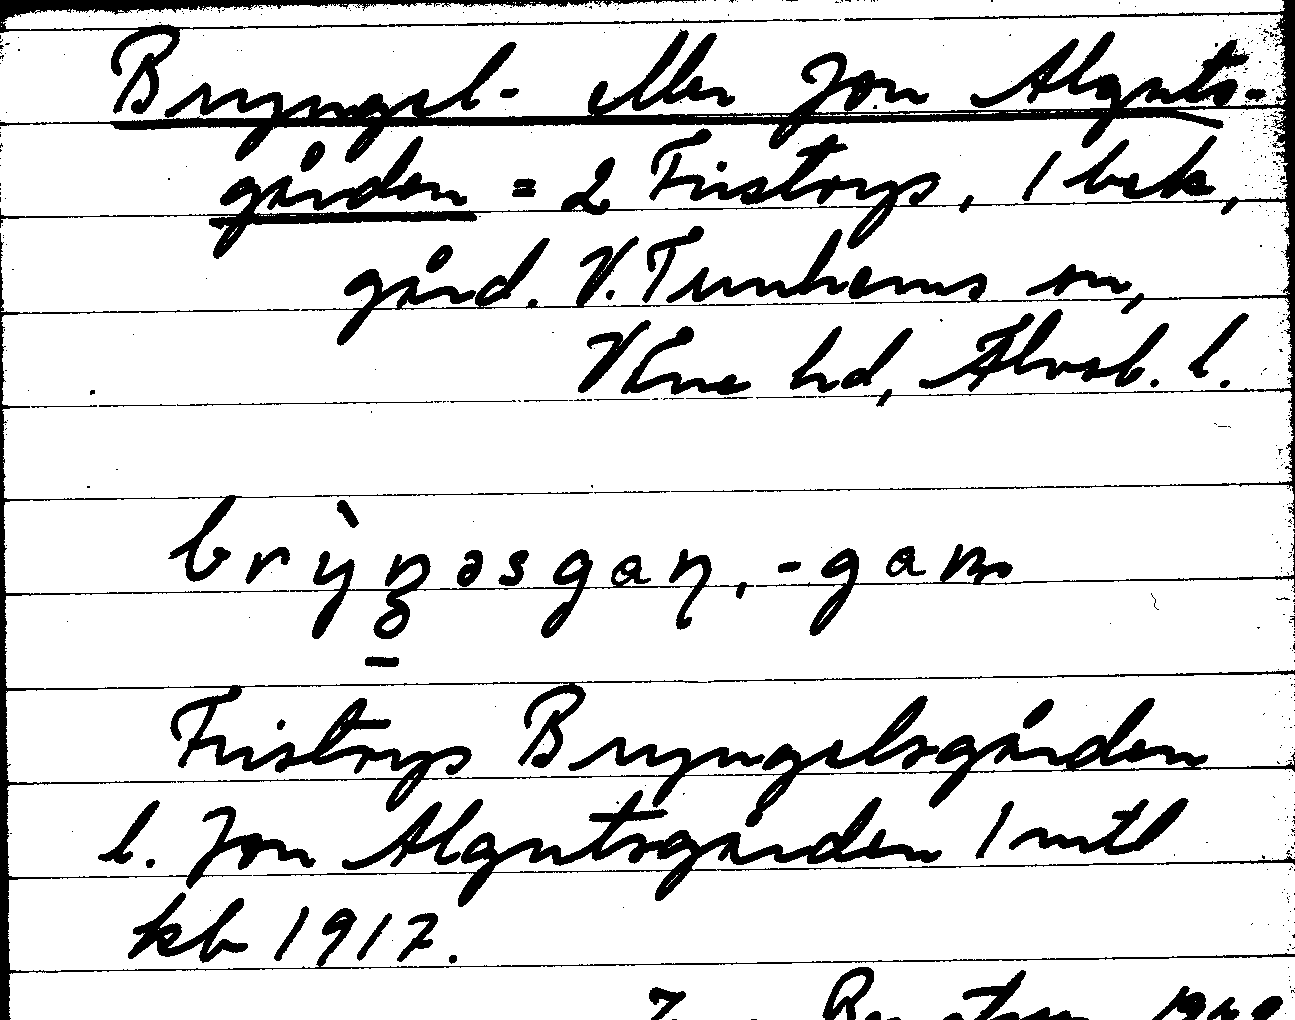 Bryngel- eller Jon Alguts-
gården = 2 Fristorps, 1 bek,
gård. V. Tunhems sn,
Väne hd, Älvsb. l.
brỳŋəsgaɳ, -gaɳ
Fristorps Bryngelsgården
l. Jon Algutsgården 1 mtl
kb 1917.